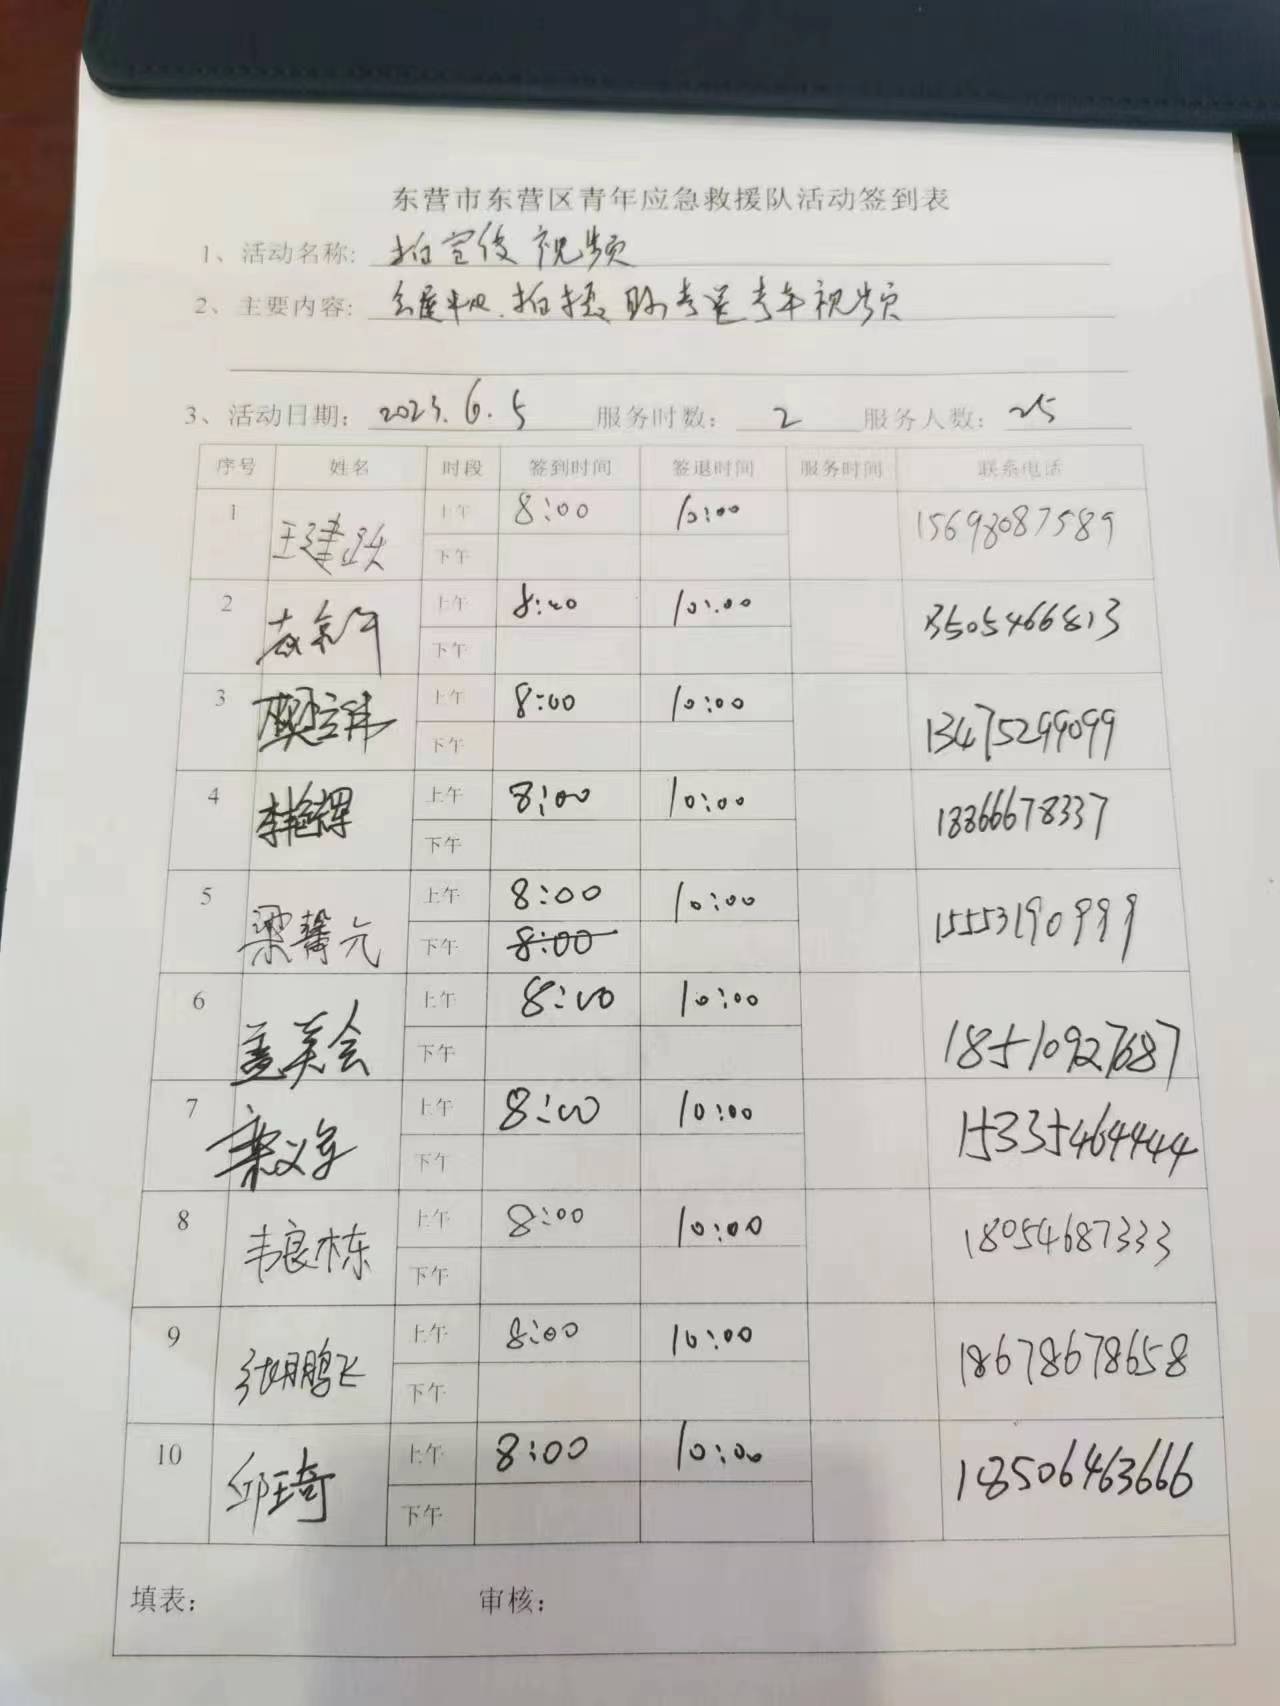 东营市东营区青年应急救援队活动签到表
1、活动名称: 拍宣传视频
2、主要内容: 拍摄助考送考车视频
3、活动日期: 2023.6.5 服务时数: 2 服务人数: 25
序号 姓名 时段 签到时间 签退时间 服务时间 联系电话
1 王建 上午 8:00 10:00 15698087589
下午
2 上午 8:00 10:00 13505466813
下午
3 樊立伟 上午 8:00 10:00 13475299099
下午
4 李艳辉 上午 8:00 10:00 18366678337
下午
5 梁馨元 上午 8:00 10:00 15553190999
下午 8:00
6 孟美会 上午 8:00 10:00 18510927687
下午
7 上午 8:00 10:00 15335464444
下午
8 韦良栋 上午 8:00 10:00 18054687333
下午
9 张鹏飞 上午 8:00 10:00 18678678658
下午
10 邱琦 上午 8:00 10:00 18506463666
下午
填表: 审核: